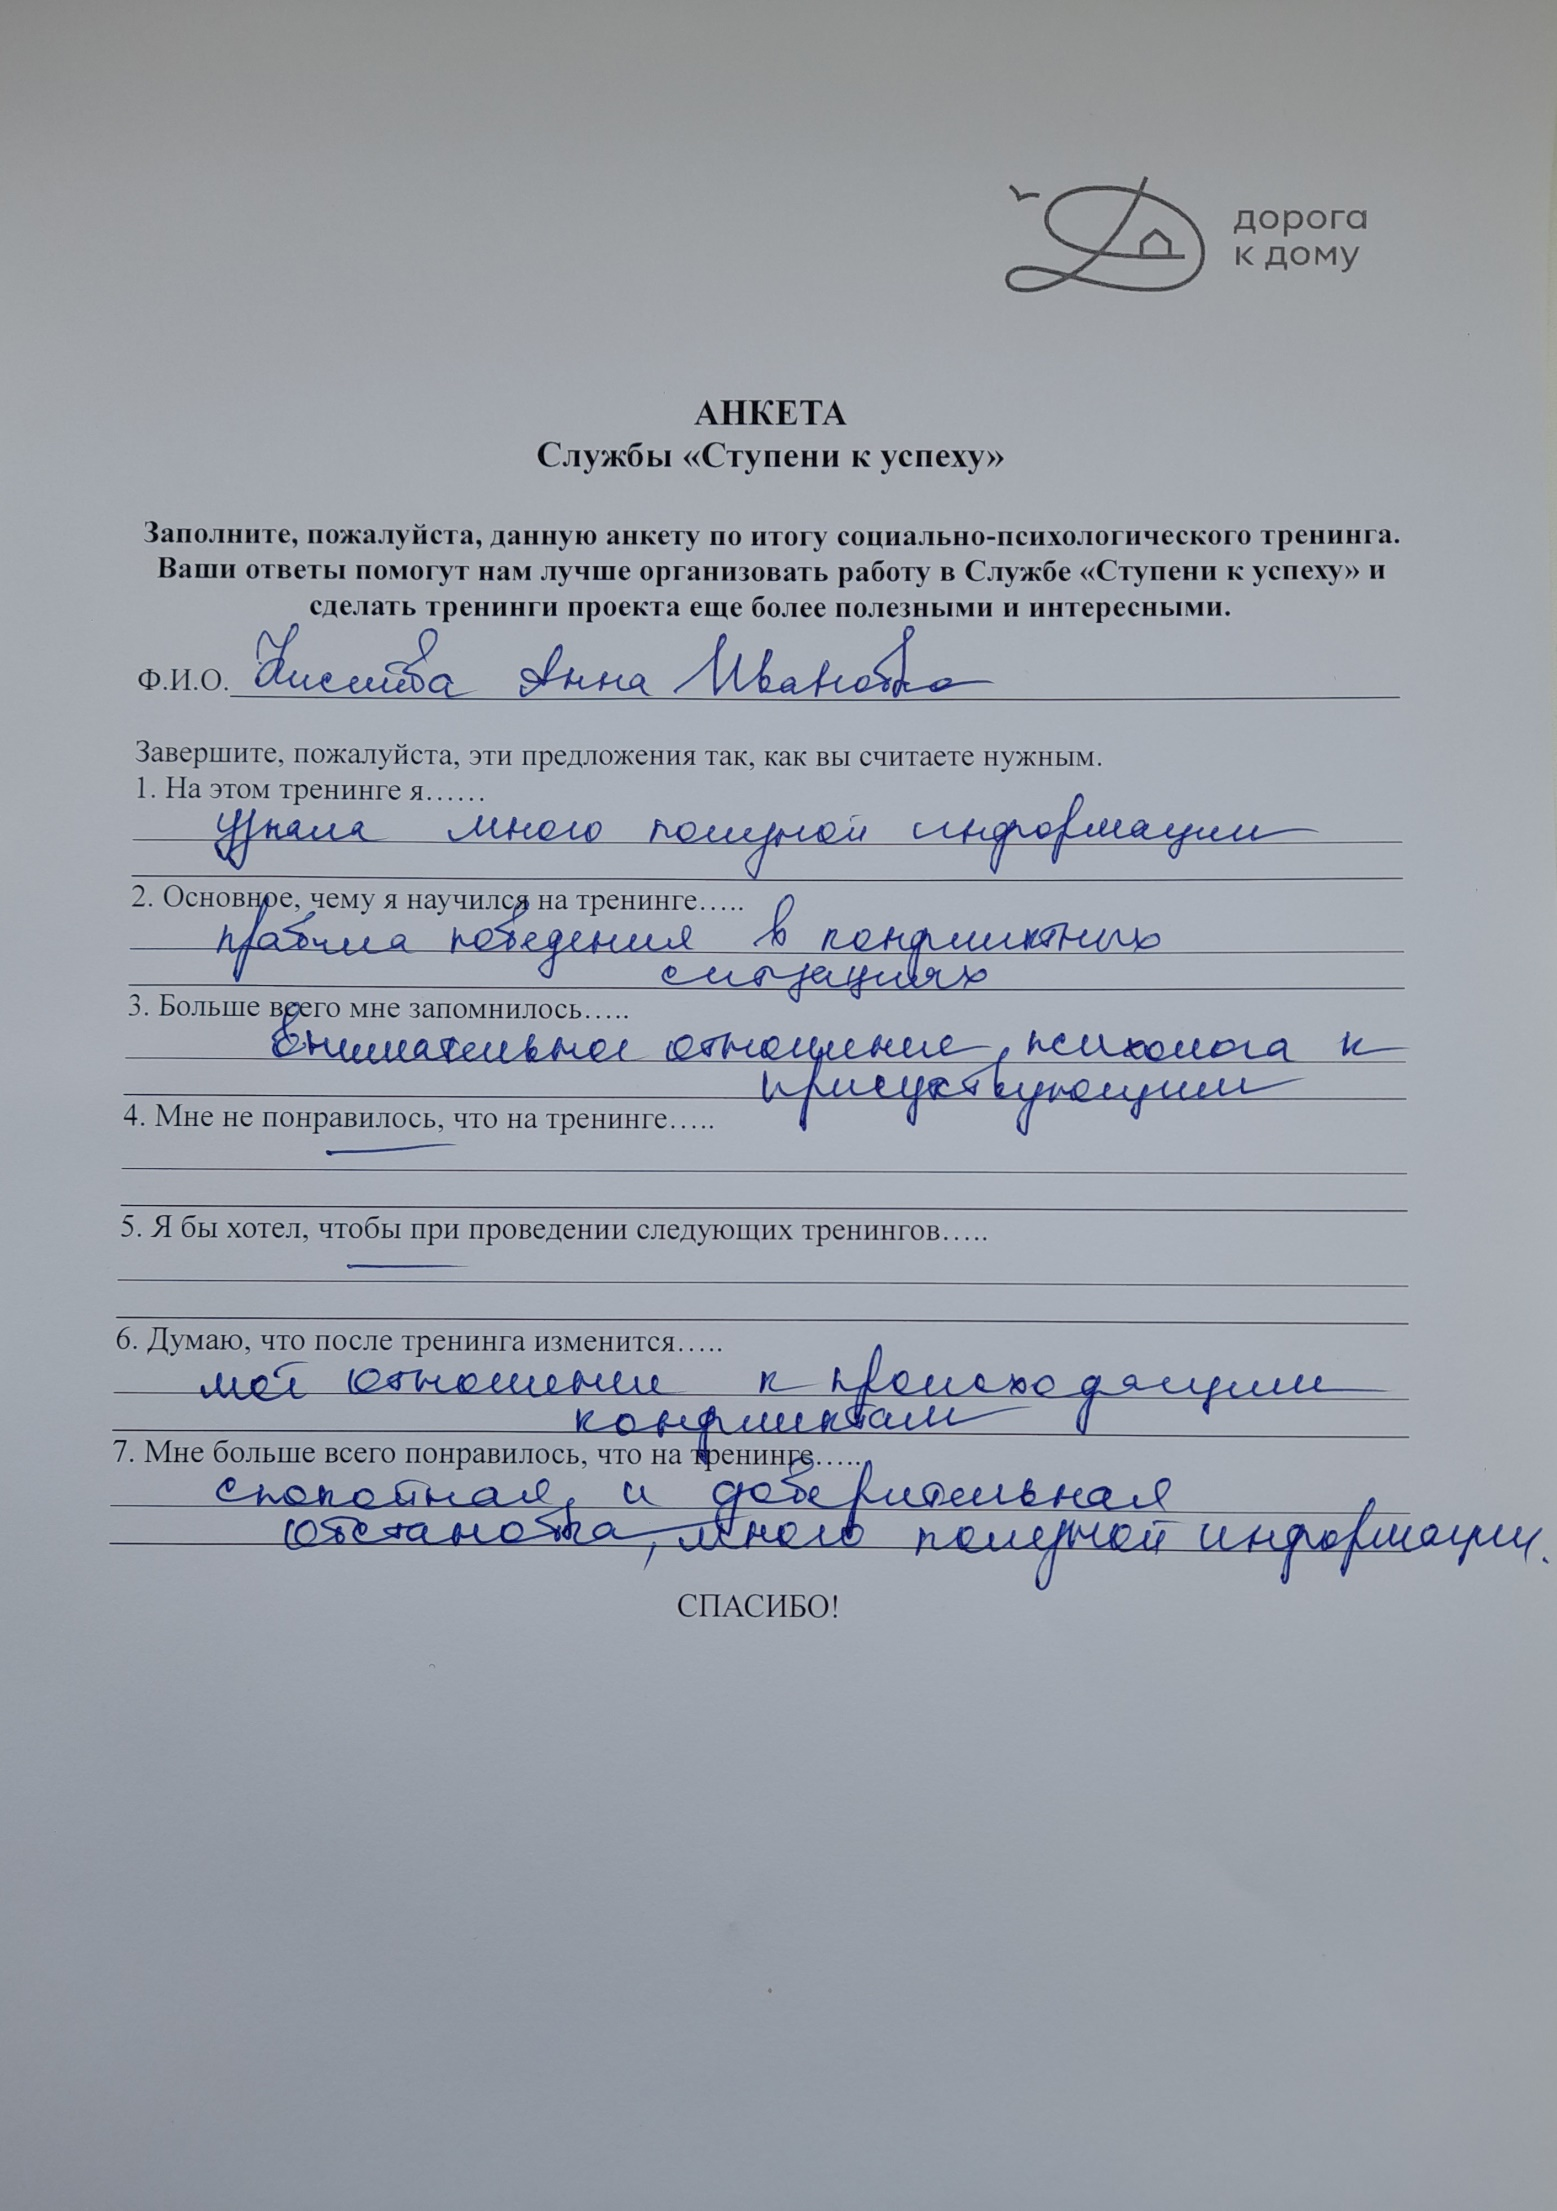 дорога
к дому
АНКЕТА
Службы «Ступени к успеху»
Заполните, пожалуйста, данную анкету по итогу социально-психологического тренинга.
Ваши ответы помогут нам лучше организовать работу в Службе «Ступени к успеху» и
сделать тренинги проекта еще более полезными и интересными.
Ф.И.О. Анна Ивановна
Завершите, пожалуйста, эти предложения так, как вы считаете нужным.
1. На этом тренинге я……
узнала много полезной информации
2. Основное, чему я научился на тренинге…..
правила поведения в конфликтных
ситуациях
3. Больше всего мне запомнилось…..
внимательное отношение психолога к
присутствующим
4. Мне не понравилось, что на тренинге…..
—
5. Я бы хотел, чтобы при проведении следующих тренингов…..
—
6. Думаю, что после тренинга изменится…..
моё отношение к происходящим
конфликтам
7. Мне больше всего понравилось, что на тренинге…..
спокойная и доверительная
обстановка, много полезной информации.
СПАСИБО!